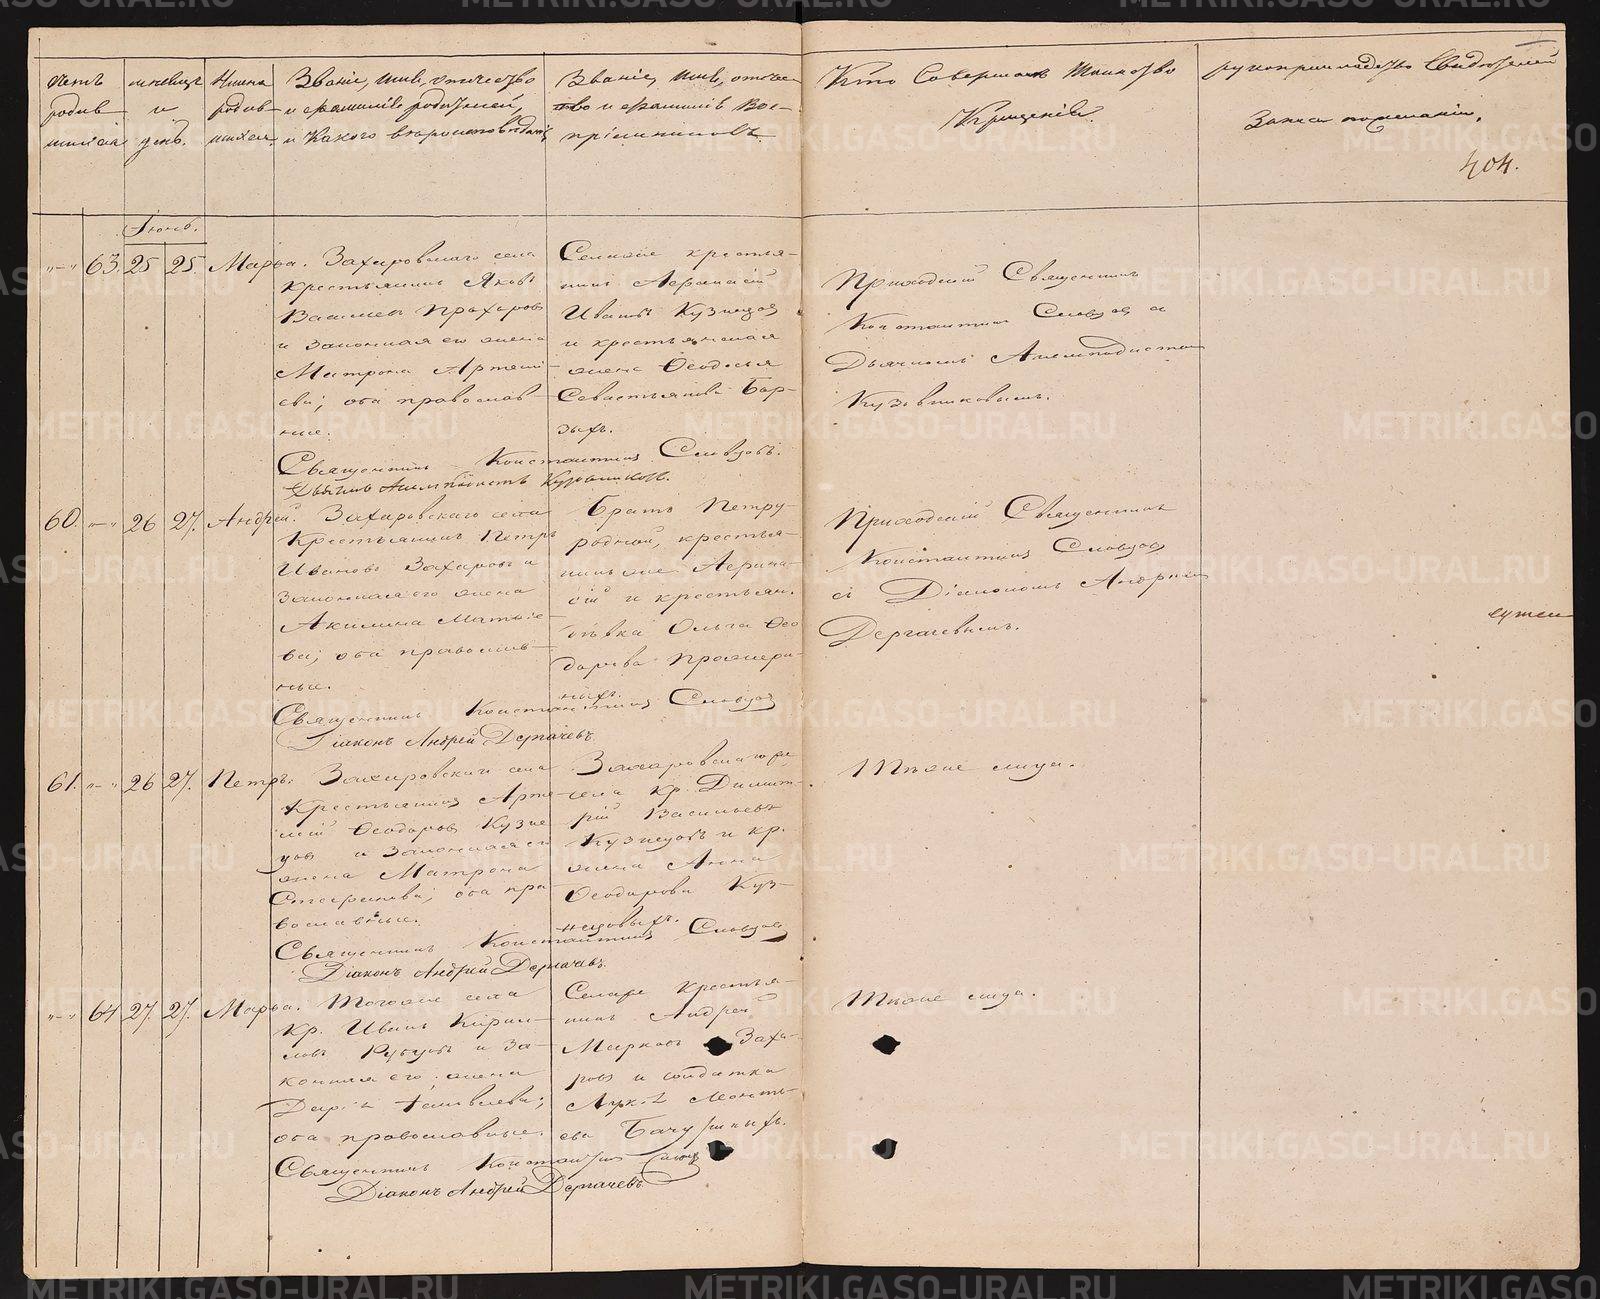 Счетъ родив- шихся
мѣсяцъ и день.
Имена родив- шихся.
Званіе, имя, отчество
и фамилія родителей,
и какого вѣроисповѣданія
Званіе, имя, отчес-
тво и фамилія вос-
пріемниковъ.
Кто совершалъ таинство
Крещенія.
рукоприкладство свидѣтелей
записи по желанію.
404.
Іюнь.
"-" 63. 25 25. Марья.
Захаровскаго села
крестьянинъ Яковъ
Прохоровъ
и законная его жена
Матрона Артеми-
ева; оба православ-
ные.
Священникъ Константинъ Словцовъ.
Кузовниковъ.
Селаже крестья-
нинъ Афанасій
Ивановъ Кузнецов
и крестьянская
жена Ѳеодосья
Севастьянова Бор-
зыхъ.
Приходскій Священникъ
Константинъ Словцов а
Дьячкомъ
Кузовниковымъ.
60. "-" 26 27. Андрей.
Захаровскаго села
Крестьянинъ Петръ
Ивановъ Захаровъ и
законная его жена
Акилина Матвѣе-
ва; оба православ-
ные.
Священникъ Константинъ Словцов
Діаконъ Андрей Дергачевъ
Братъ Петру
родной, крестья-
нинъ же Афана-
сій и крестьян.
дѣвка Ольга Ѳео
дорова
ныхъ.
Приходскій Священникъ
Константинъ Словцов
съ Діакономъ Андреем
Дергачевымъ.
61. "-" 26 27. Петръ.
Захаровскаго села
Крестьянинъ Арте-
мій Ѳеодоров Кузне
цов и законная ег
жена Матрона
Стефанова; оба пра-
вославные.
Священникъ Константинъ Словцов
Діаконъ Андрей Дергачевъ.
Захаровскаго же
села кр. Димит-
рій Васильевъ
Кузнецовъ и кр.
жена Анна
Ѳеодорова Куз-
нецовыхъ.
Тѣже лица.
"-" 64 27. 27. Марья.
Тогоже села
кр. Иванъ Кирил-
ловъ и за-
конная его жена
Дарья
оба православные.
Священникъ Константинъ Словц
Діаконъ Андрей Дергачевъ
Селаже крестья-
нинъ Андрей
Марковъ Заха-
ров и солдатка
ева
Тѣже лица.
METRIKI.GASO-URAL.RU